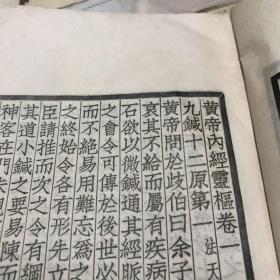 黄帝內經靈樞卷一
九鍼十二原第　法天
黄帝問於歧伯曰余子
哀其不給而屬有疾病
石欲以微鍼通其經脈
之會令可傳於後世必
而不絶易用難忘爲之
之終始令各有形先立
臣請推而次之令有綱
其道小鍼之要易陳而
神客在門